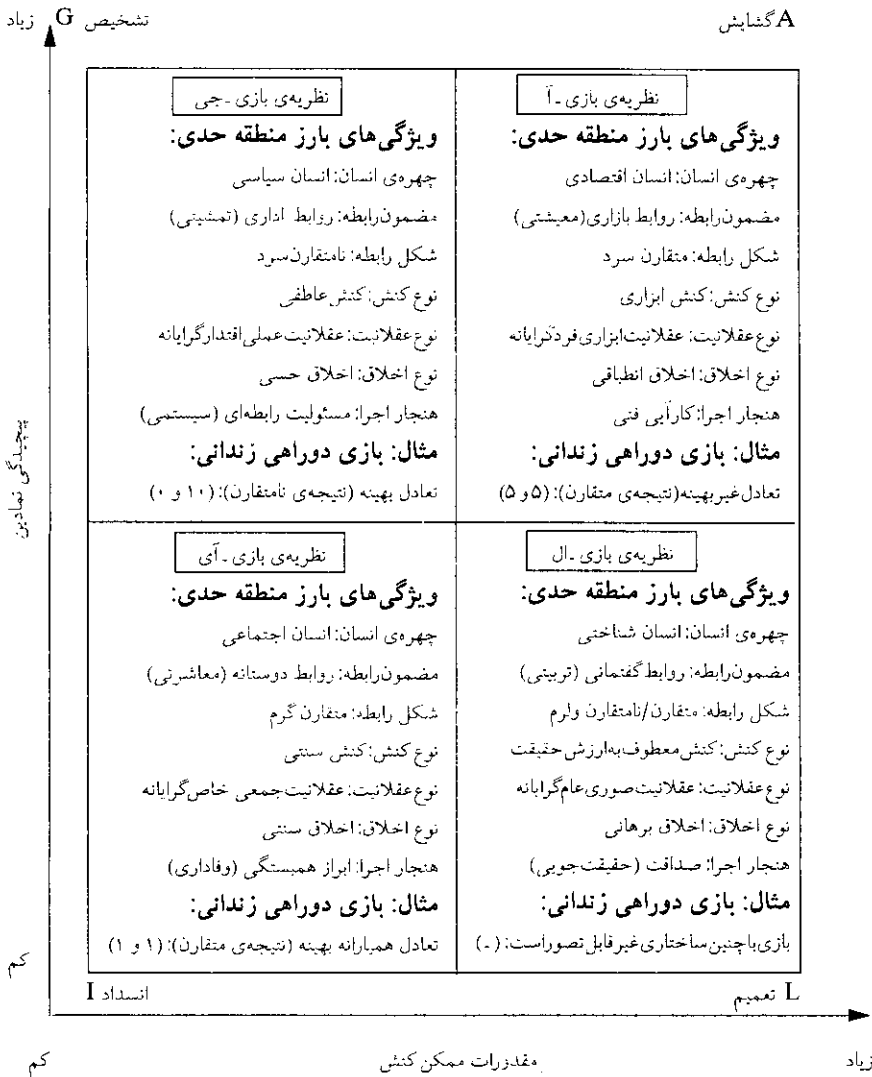 A گشایش
تشخیص G زیاد
نظریه‌ی بازی ـ آ
ویژگی‌های بارز منطقه حدی:
چهره‌ی انسان: انسان اقتصادی
مضمون‌رابطه: روابط بازاری(معیشتی)
شکل رابطه: متقارن سرد
نوع کنش: کنش ابزاری
نوع‌عقلانیت: عقلانیت‌ابزاری‌فردگرایانه
نوع اخلاق: اخلاق انطباقی
هنجار اجرا: کارآیی فنی
مثال: بازی دوراهی زندانی:
تعادل‌غیربهینه(نتیجه‌ی متقارن): (۵ و ۵)
نظریه‌ی بازی ـ جی
ویژگی‌های بارز منطقه حدی:
چهره‌ی انسان: انسان سیاسی
مضمون‌رابطه: روابط اداری (تمشیتی)
شکل رابطه: نامتقارن‌سرد
نوع کنش: کنش عاطفی
نوع‌عقلانیت: عقلانیت‌عملی‌اقتدارگرایانه
نوع اخلاق: اخلاق حسی
هنجار اجرا: مسئولیت رابطه‌ای (سیستمی)
مثال: بازی دوراهی زندانی:
تعادل بهینه (نتیجه‌ی نامتقارن): (۱۰ و ۰)
پیچیدگی نمادین
نظریه‌ی بازی ـ ال
ویژگی‌های بارز منطقه حدی:
چهره‌ی انسان: انسان شناختی
مضمون‌رابطه: روابط گفتمانی (تربیتی)
شکل رابطه: متقارن/نامتقارن ولرم
نوع کنش: کنش‌معطوف‌به‌ارزش حقیقت
نوع‌عقلانیت: عقلانیت‌صوری‌عام‌گرایانه
نوع اخلاق: اخلاق برهانی
هنجار اجرا: صداقت (حقیقت‌جویی)
مثال: بازی دوراهی زندانی:
بازی‌باچنین‌ساختاری‌غیرقابل‌تصوراست: ( ـ )
نظریه‌ی بازی ـ آی
ویژگی‌های بارز منطقه حدی:
چهره‌ی انسان: انسان اجتماعی
مضمون‌رابطه: روابط دوستانه (معاشرتی)
شکل رابطه: متقارن گرم
نوع کنش: کنش سنتی
نوع‌عقلانیت: عقلانیت‌جمعی خاص‌گرایانه
نوع اخلاق: اخلاق سنتی
هنجار اجرا: ابراز همبستگی (وفاداری)
مثال: بازی دوراهی زندانی:
تعادل همیارانه بهینه (نتیجه‌ی متقارن): (۱ و ۱)
کم
L تعمیم
انسداد I
زیاد
مقدورات ممکن کنش
کم